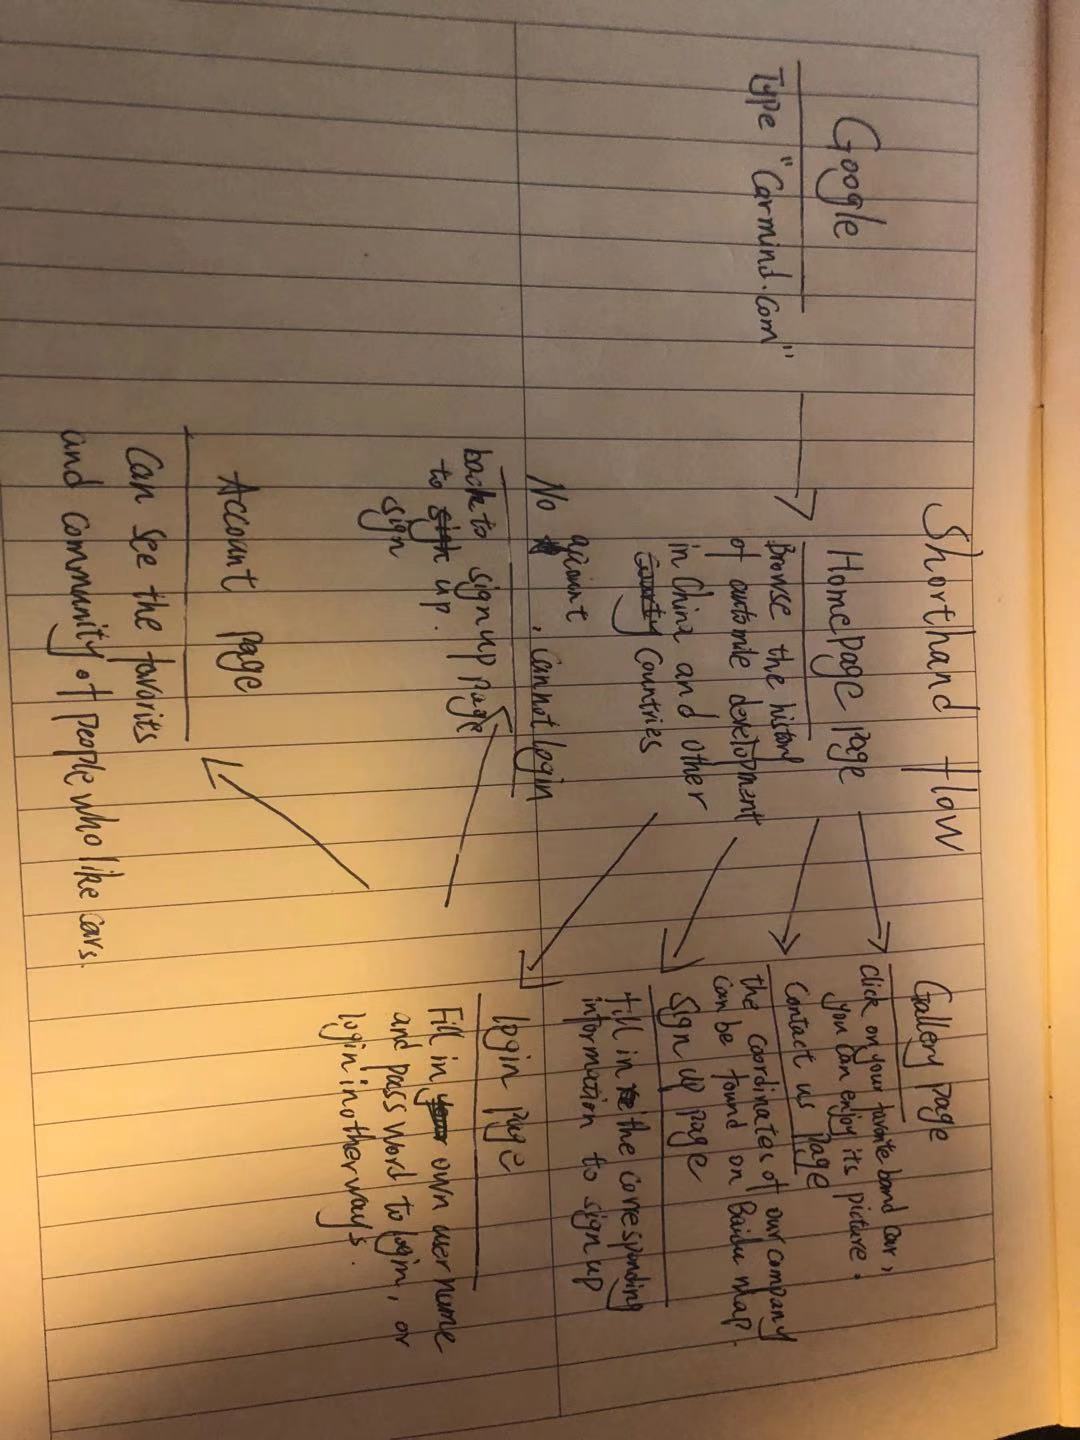 Shorthand flow
Google
Type "Carmind.com"
Homepage page
Browse the history
of automile development
in China and other
Countries
Gallery page
click on your favorite band car,
you can enjoy its picture.
Contact us Page
the coordinates of our company
can be found on Baidu map.
sign up page
fill in the corresponding
information to sign up
login page
Fill in own user name
and pass word to login, or
login in other ways.
No account, cannot login
back to sign up page
to sign up.
Account page
Can see the favorits
and community of people who like cars.